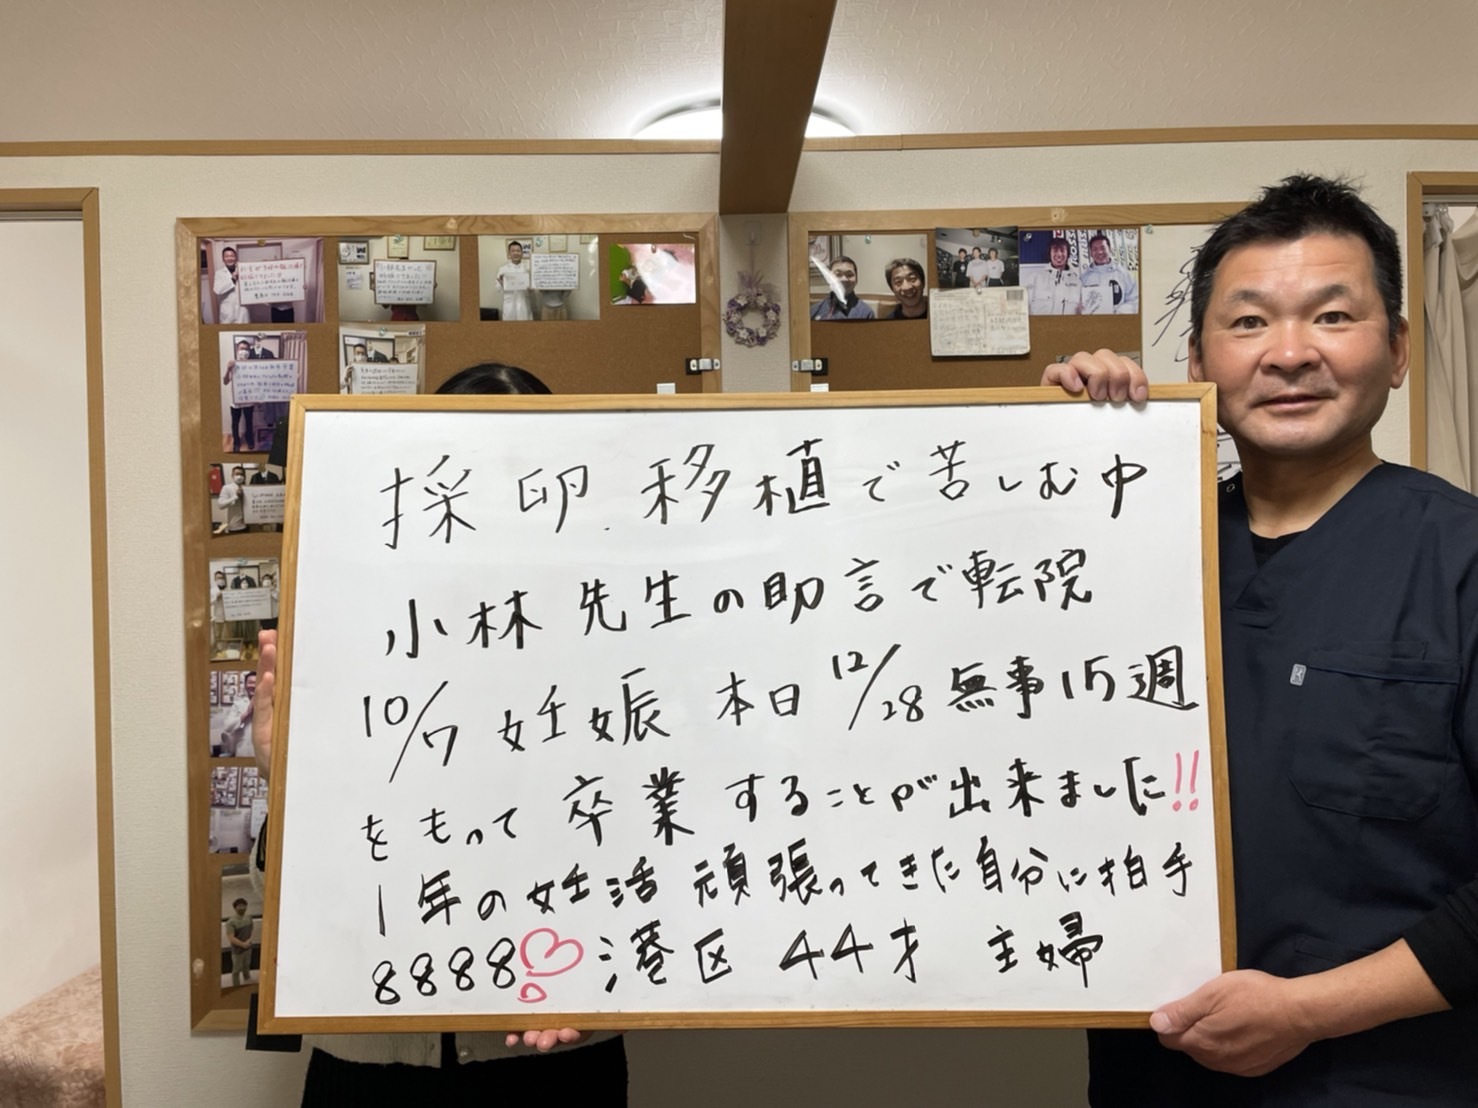 採卵.移植で苦しむ中
小林先生の助言で転院
10/7 妊娠 本日 12/28 無事15週
をもって卒業することが出来ました!!
1年の妊活 頑張ってきた自分に拍手
8888♡ 港区 44才 主婦